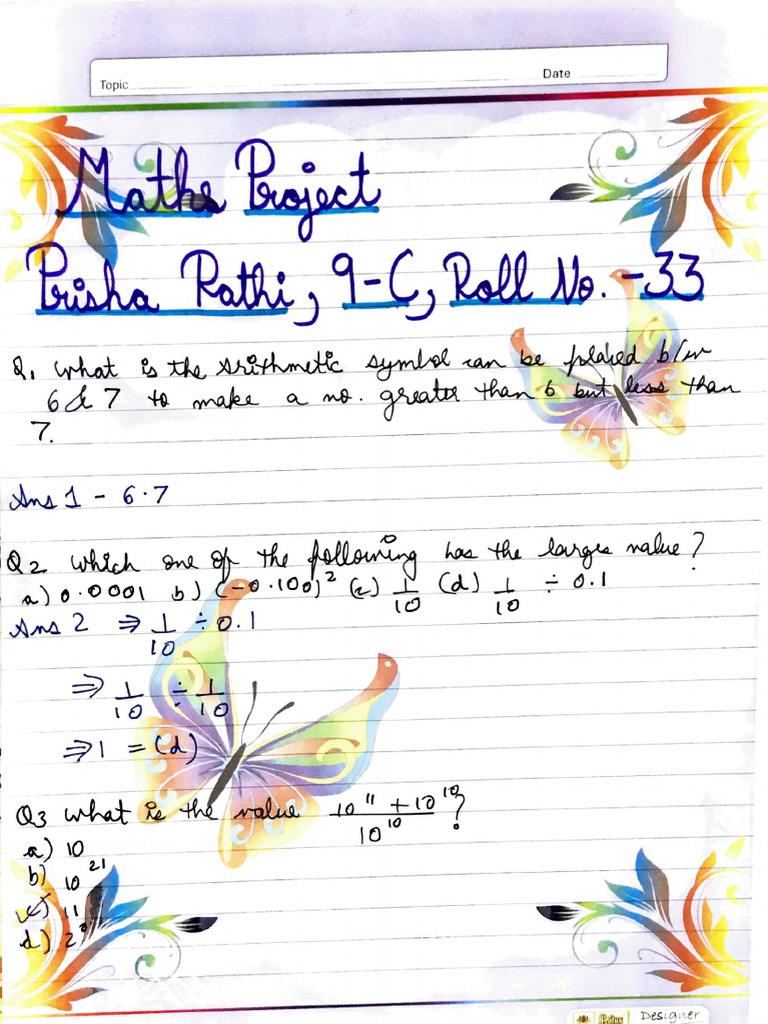 Topic Date
Maths Project
Prisha Rathi, 9-C, Roll No. -33
Q1 What is the arithmetic symbol can be placed b/w
6 & 7 to make a no. greater than 6 but less than
7.
Ans 1 - 6.7
Q2 Which one of the following has the larges value?
a) 0.0001 b) (-0.100)² (c) 1/10 (d) 1/10 ÷ 0.1
Ans 2 ⇒ 1/10 ÷ 0.1
⇒ 1/10 ÷ 1/10
⇒ 1 = (d)
Q3 What is the value (10¹¹ + 10¹⁰)/10¹⁰?
a) 10
b) 10²¹
c) 11
d)
Designer